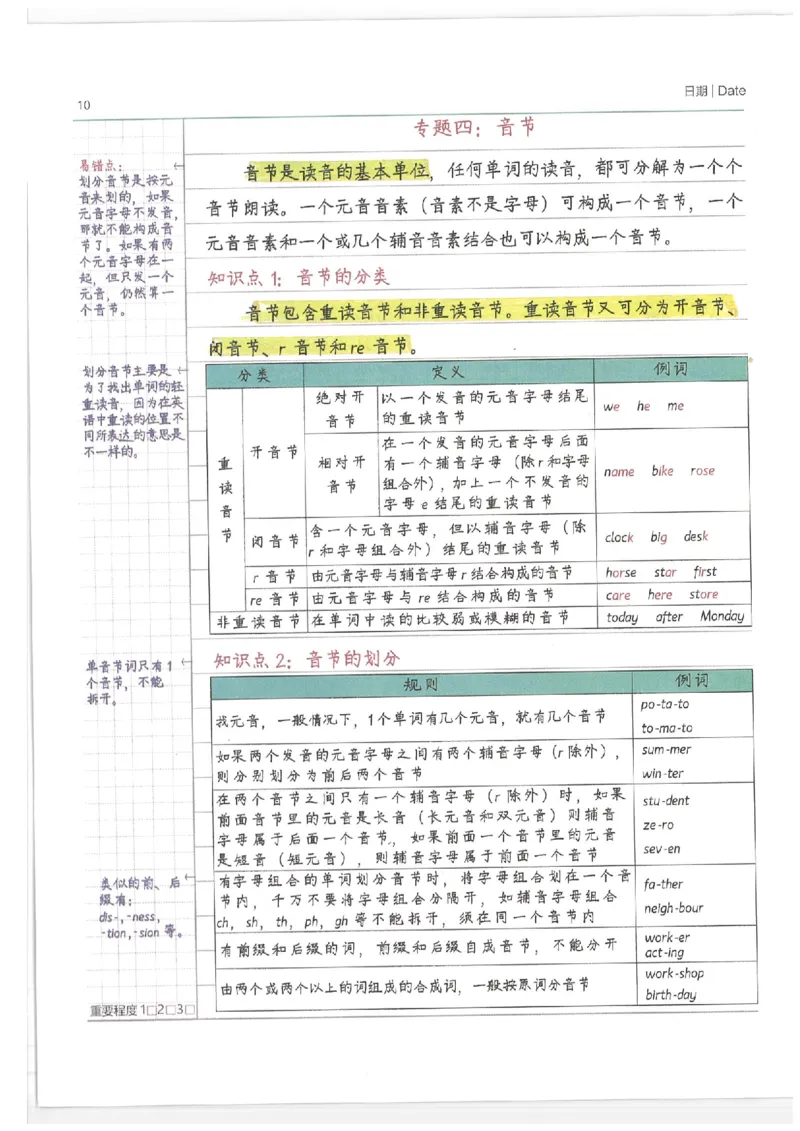 日期 | Date
10
专题四：音节
音节是读音的基本单位，任何单词的读音，都可分解为一个个
音节朗读。一个元音音素（音素不是字母）可构成一个音节，一个
元音音素和一个或几个辅音音素结合也可以构成一个音节。
易错点：
划分音节是按元
音来划的，如果
元音字母不发音，
那就不能构成音
节了。如果有两
个元音字母在一
起，但只发一个
元音，仍然算一
个音节。
知识点 1：音节的分类
音节包含重读音节和非重读音节。重读音节又可分为开音节、
闭音节、r 音节和 re 音节。
划分音节主要是
为了找出单词的轻
重读音，因为在英
语中重读的位置不
同所表达的意思是
不一样的。
分类 定义 例词
重读音节
开音节
绝对开
音节
以一个发音的元音字母结尾
的重读音节
we he me
相对开
音节
在一个发音的元音字母后面
有一个辅音字母（除r和字母
组合外），加上一个不发音的
字母 e 结尾的重读音节
name bike rose
闭音节
含一个元音字母，但以辅音字母（除
r 和字母组合外）结尾的重读音节
clock big desk
r 音节 由元音字母与辅音字母r结合构成的音节 horse star first
re 音节 由元音字母与 re 结合构成的音节 care here store
非重读音节 在单词中读的比较弱或模糊的音节 today after Monday
知识点 2：音节的划分
单音节词只有1
个音节，不能
拆开。
规则 例词
找元音，一般情况下，1个单词有几个元音，就有几个音节
po-ta-to
to-ma-to
如果两个发音的元音字母之间有两个辅音字母（r 除外），
则分别划分为前后两个音节
sum-mer
win-ter
在两个音节之间只有一个辅音字母（r 除外）时，如果
前面音节里的元音是长音（长元音和双元音）则辅音
字母属于后面一个音节，如果前面一个音节里的元音
是短音（短元音），则辅音字母属于前面一个音节
stu-dent
ze-ro
sev-en
类似的前、后
缀有：
dis-，-ness，
-tion，-sion 等。
有字母组合的单词划分音节时，将字母组合划在一个音
节内，千万不要将字母组合分隔开，如辅音字母组合
ch，sh，th，ph，gh 等不能拆开，须在同一个音节内
fa-ther
neigh-bour
有前缀和后缀的词，前缀和后缀自成音节，不能分开
work-er
act-ing
由两个或两个以上的词组成的合成词，一般按原词分音节
work-shop
birth-day
重要程度 1□2□3□